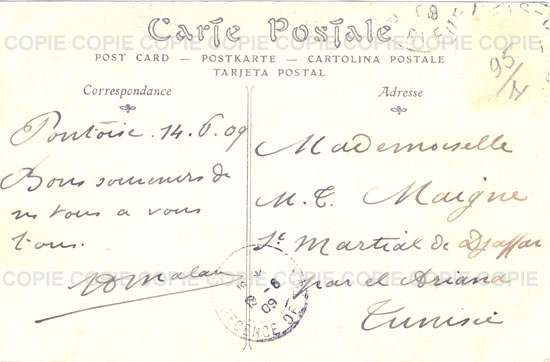 Carte Postale
POST CARD — POSTKARTE — CARTOLINA POSTALE
TARJETA POSTAL
COPIE COPIE COPIE COPIE COPIE COPIE COPIE
95/
Correspondance
Adresse
Pontoise. 14.6.09
Bons souvenirs de
ns tous a vous
tous.
Mademoiselle
M. T. Maigne
St Martial de Djaffar
par el Ariana
Tunisie
09
COPIE COPIE COPIE COPIE COPIE COPIE COPIE